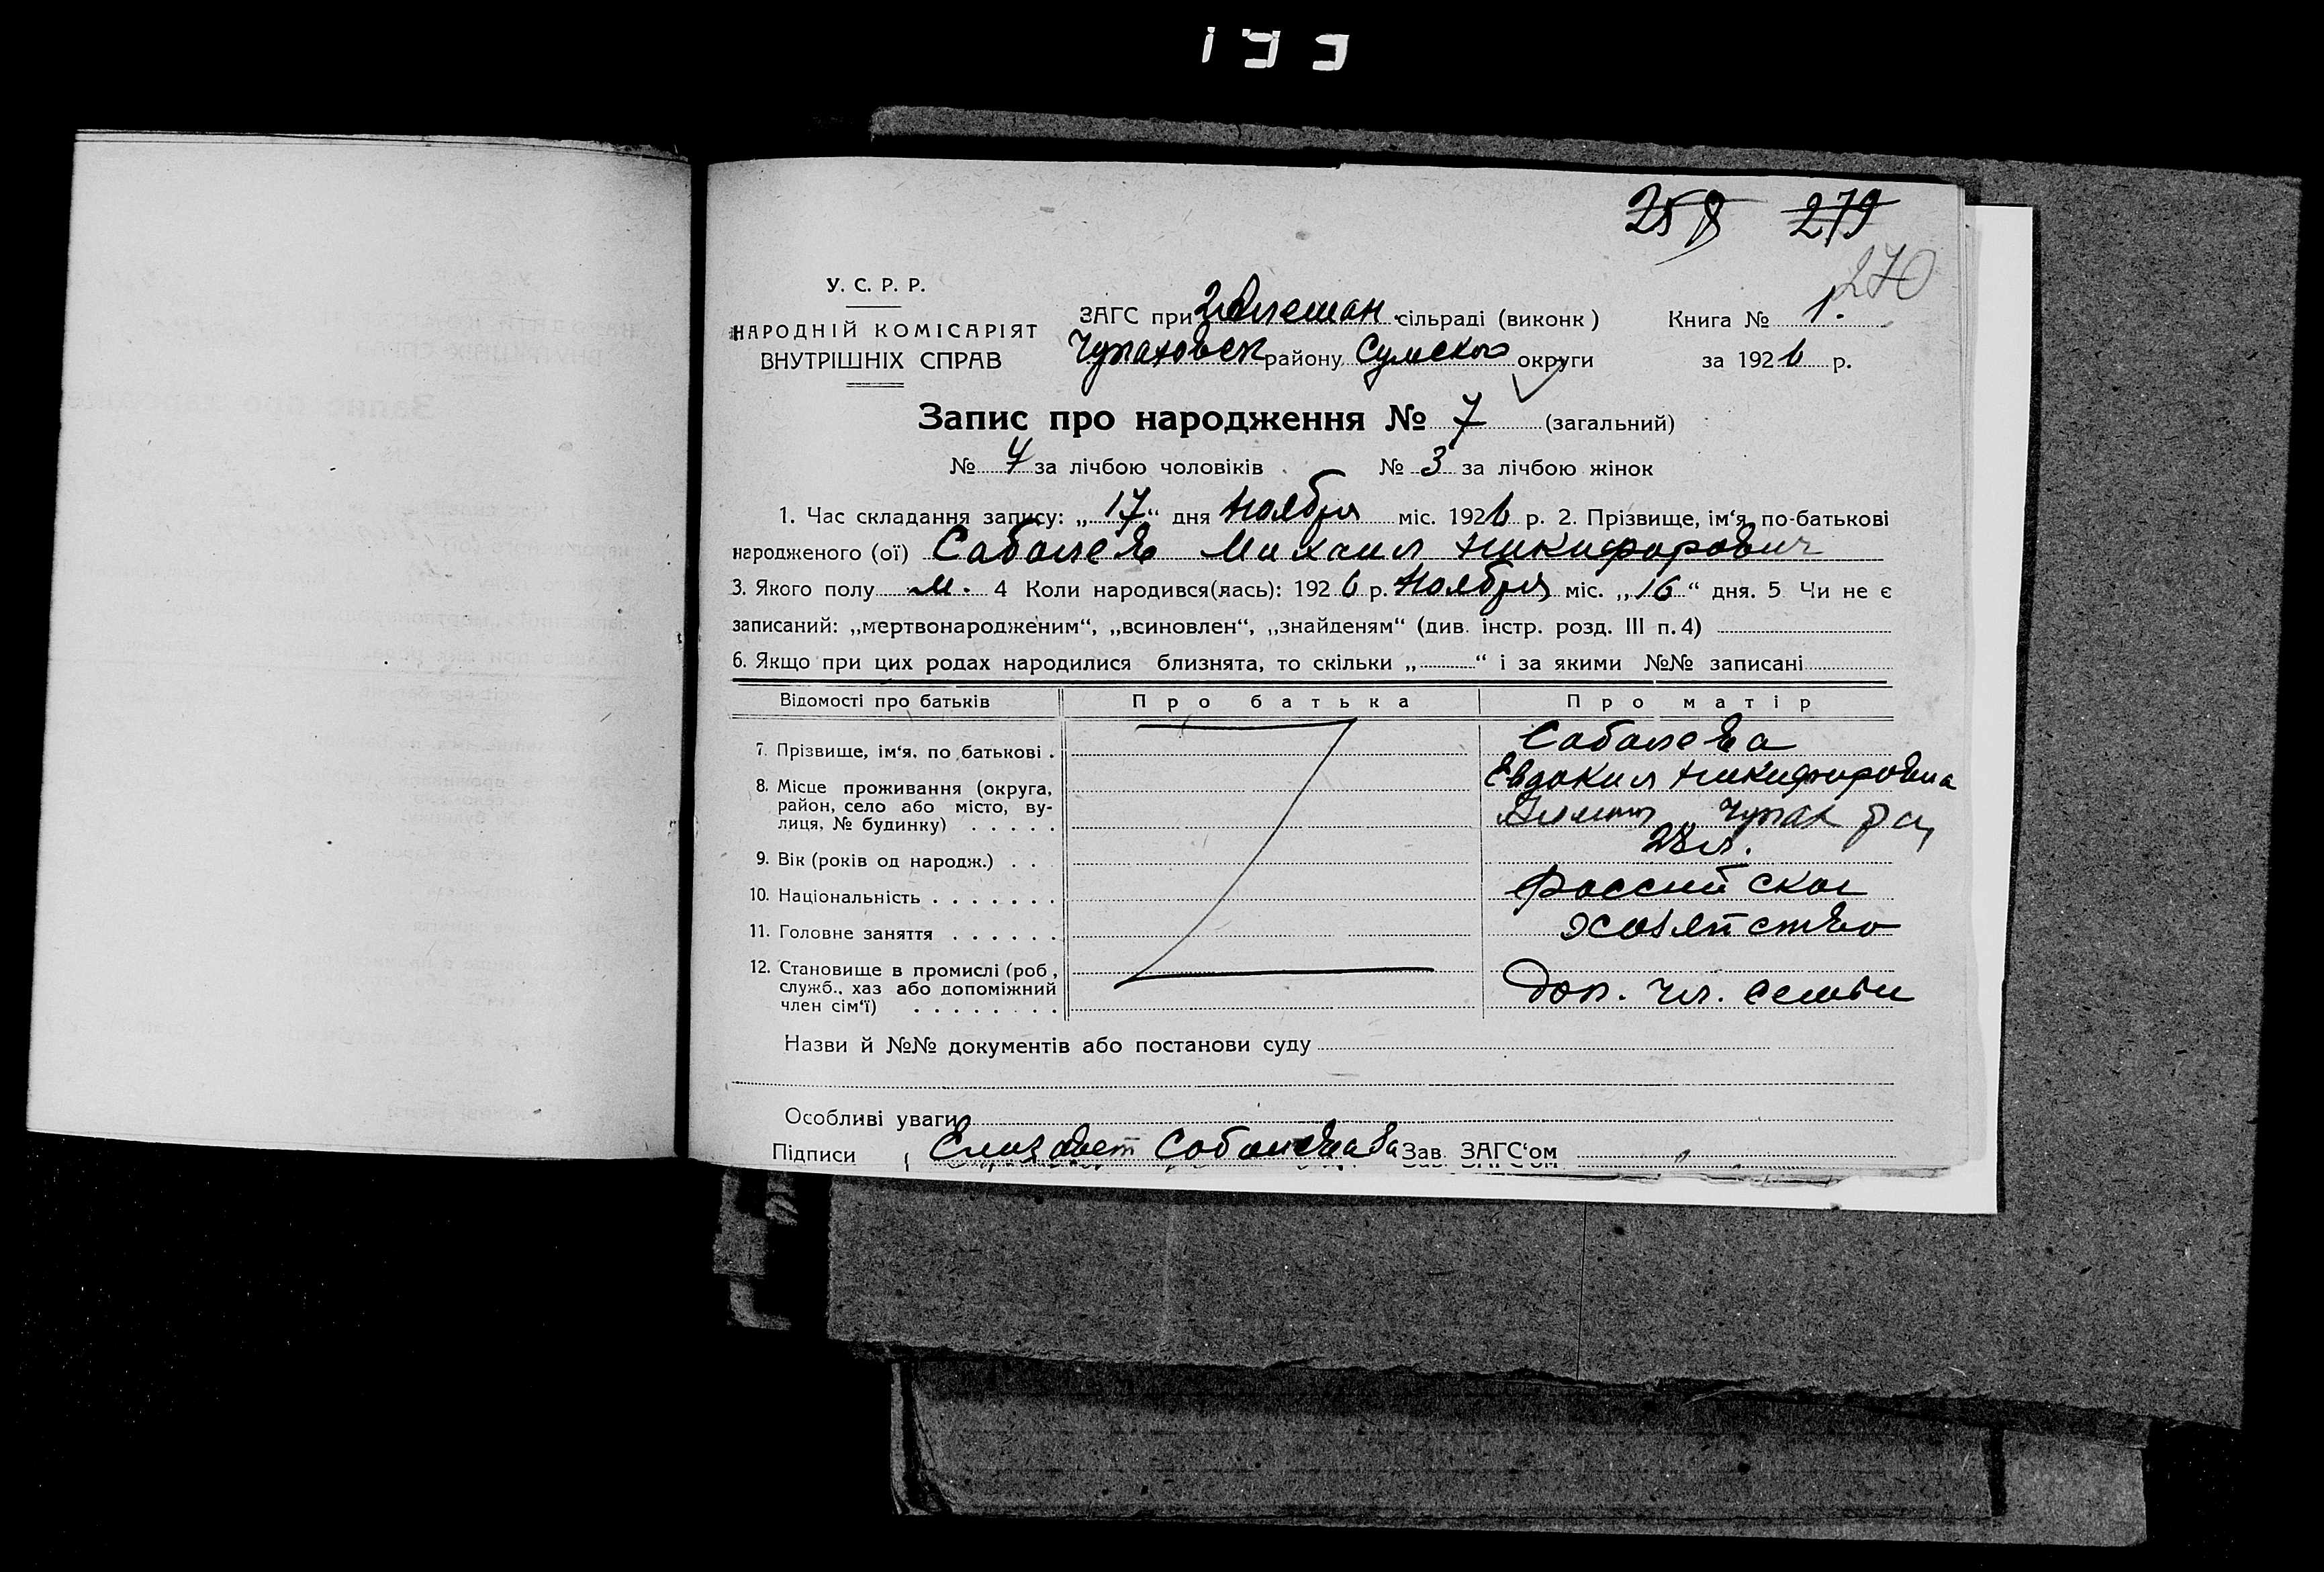 258 279
270
У. С. Р. Р.
НАРОДНІЙ КОМІСАРІЯТ
ВНУТРІШНІХ СПРАВ
ЗАГС при сільраді (виконк)
Чупаховск району Сумского округи
Книга № 1.
за 1926 р.
Запис про народження № 7 (загальний)
№ 4 за лічбою чоловіків № 3 за лічбою жінок
1. Час складання запису: „17“ дня Ноября міс. 1926 р. 2. Прізвище, ім‘я, по-батькові
народженого (ої) Саболев Михаил Никифорович
3. Якого полу м. 4 Коли народився(лась): 1926 р. Ноября міс. „16“ дня. 5 Чи не є
записаний: „мертвонародженим“, „всиновлен“, „знайденям“ (див. інстр. розд. III п. 4)
6. Якщо при цих родах народилися близнята, то скільки „ “ і за якими №№ записані
Відомості про батьків Про батька Про матір
7. Прізвище, ім‘я, по батькові . Саболева
Евдокия Никифоровна
8. Місце проживання (округа,
район, село або місто, ву-
лиця, № будинку) . . . . . Чупах
9. Вік (років од народж.) . . . 28 л.
10. Національність . . . . . . . Российская
11. Головне заняття . . . . . . хозяйство
12. Становище в промислі (роб,
служб., хаз або допоміжний
член сім‘ї) . . . . . . . . Доп. чл. семьи
Назви й №№ документів або постанови суду
Особливі уваги
Підписи Зав. ЗАГС‘ом